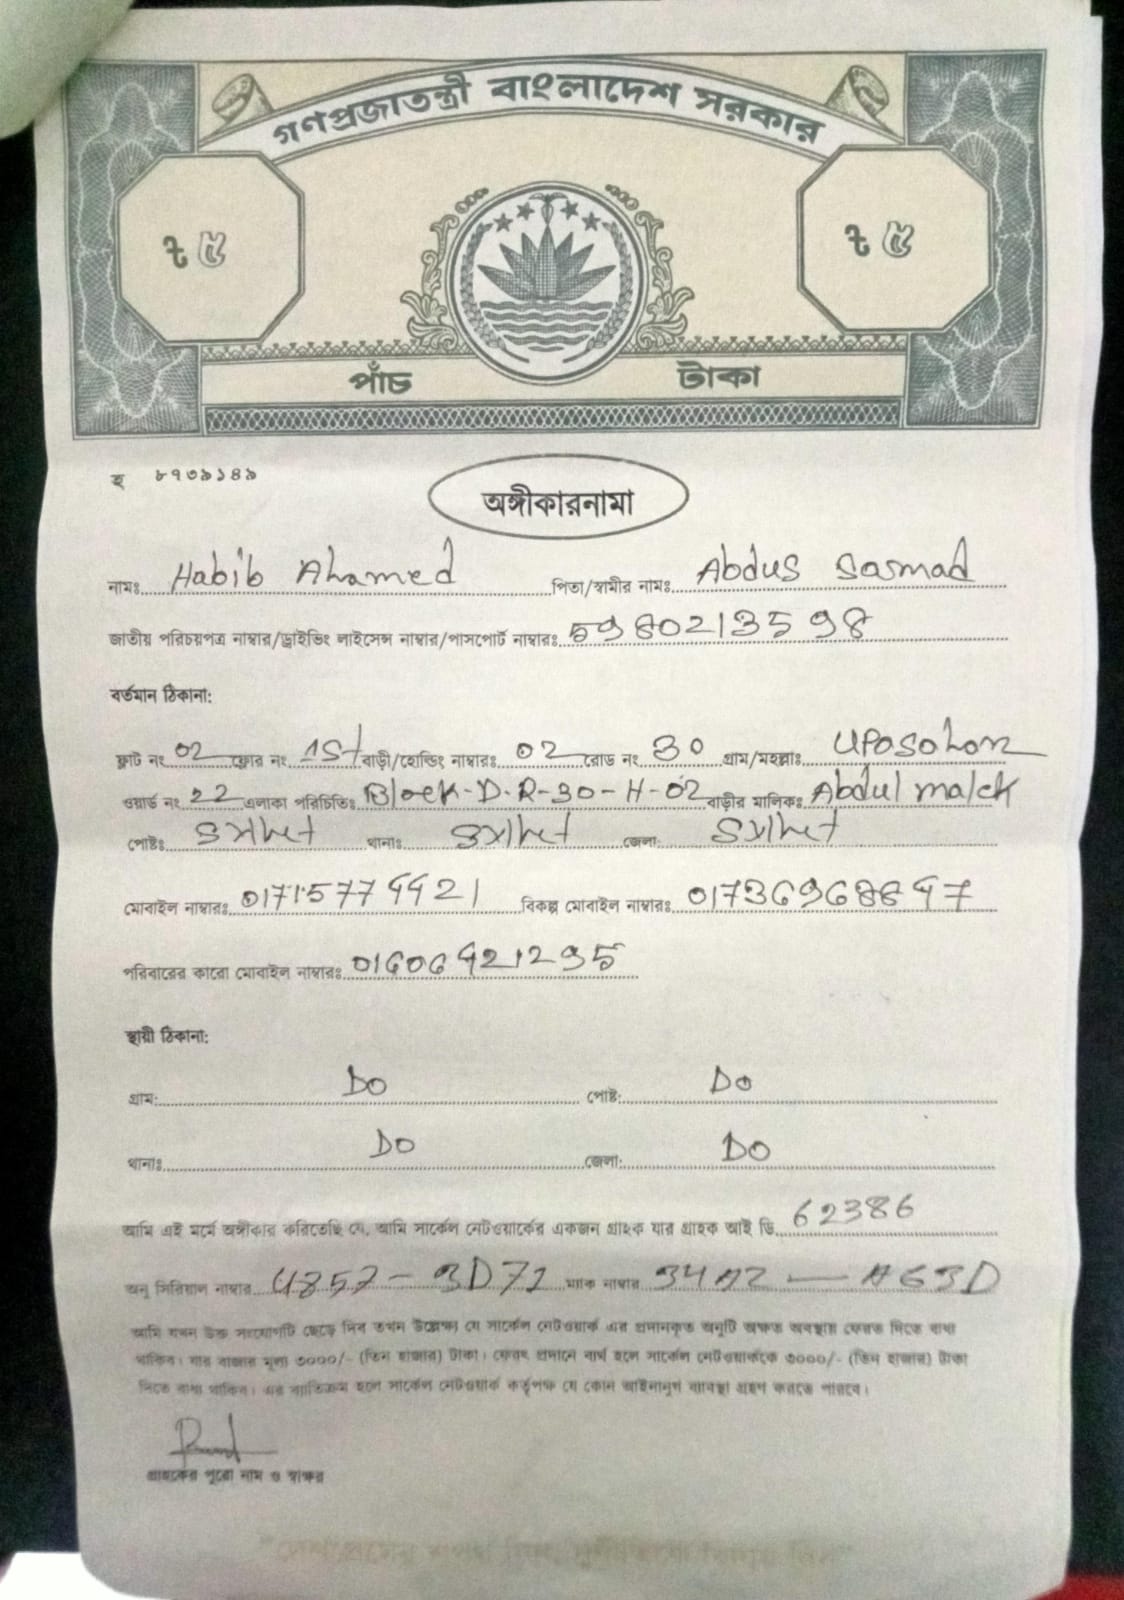 গণপ্রজাতন্ত্রী বাংলাদেশ সরকার
৳ ৫ ৳ ৫
পাঁচ টাকা
হ ৮৭৩৯১৪৯
অঙ্গীকারনামা
নামঃ Habib Ahamed পিতা/স্বামীর নামঃ Abdus Samad
জাতীয় পরিচয়পত্র নাম্বার/ড্রাইভিং লাইসেন্স নাম্বার/পাসপোর্ট নাম্বারঃ
বর্তমান ঠিকানা:
ফ্লাট নং 02 ফ্লোর নং 1st বাড়ী/হোল্ডিং নাম্বারঃ 02 রোড নং 30 গ্রাম/মহল্লাঃ Uposohor
ওয়ার্ড নং 22 এলাকা পরিচিতিঃ Block-D-R-30-H-02 বাড়ীর মালিকঃ Abdul malek
পোষ্টঃ Sylhet থানাঃ Sylhet জেলা: Sylhet
মোবাইল নাম্বারঃ বিকল্প মোবাইল নাম্বারঃ
পরিবারের কারো মোবাইল নাম্বারঃ
স্থায়ী ঠিকানা:
গ্রাম: Do পোষ্ট: Do
থানাঃ Do জেলা: Do
আমি এই মর্মে অঙ্গীকার করিতেছি যে, আমি সার্কেল নেটওয়ার্কের একজন গ্রাহক যার গ্রাহক আই ডি. 62386
অনু সিরিয়াল নাম্বার ম্যাক নাম্বার
আমি যখন উক্ত সংযোগটি ছেড়ে দিব তখন উল্লেক্ষ্য যে সার্কেল নেটওয়ার্ক এর প্রদানকৃত অনুটি অক্ষত অবস্থায় ফেরত দিতে বাধ্য
থাকিব। যার বাজার মূল্য ৩০০০/- (তিন হাজার) টাকা। ফেরৎ প্রদানে ব্যর্থ হলে সার্কেল নেটওয়ার্ককে ৩০০০/- (তিন হাজার) টাকা
দিতে বাধ্য থাকিব। এর ব্যতিক্রম হলে সার্কেল নেটওয়ার্ক কর্তৃপক্ষ যে কোন আইনানুগ ব্যবস্থা গ্রহণ করতে পারবে।
গ্রাহকের পুরো নাম ও স্বাক্ষর